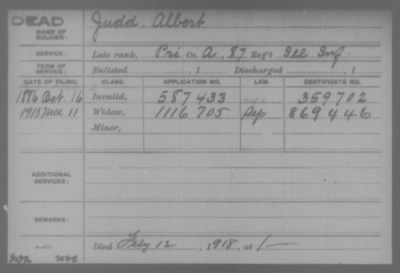 DEAD
NAME OF SOLDIER: Judd, Albert
SERVICE: Late rank, Pri Co. A, 87 Reg't Ill Inf.
TERM OF SERVICE: Enlisted , 1 Discharged , 1
DATE OF FILING. CLASS. APPLICATION NO. LAW. CERTIFICATE NO.
1886 Oct. 16 Invalid, 587433 359702
1918 Mch 11 Widow, 1116705 Dep 869446
Minor,
ADDITIONAL SERVICES:
REMARKS:
Died Feby 12, 1918, at